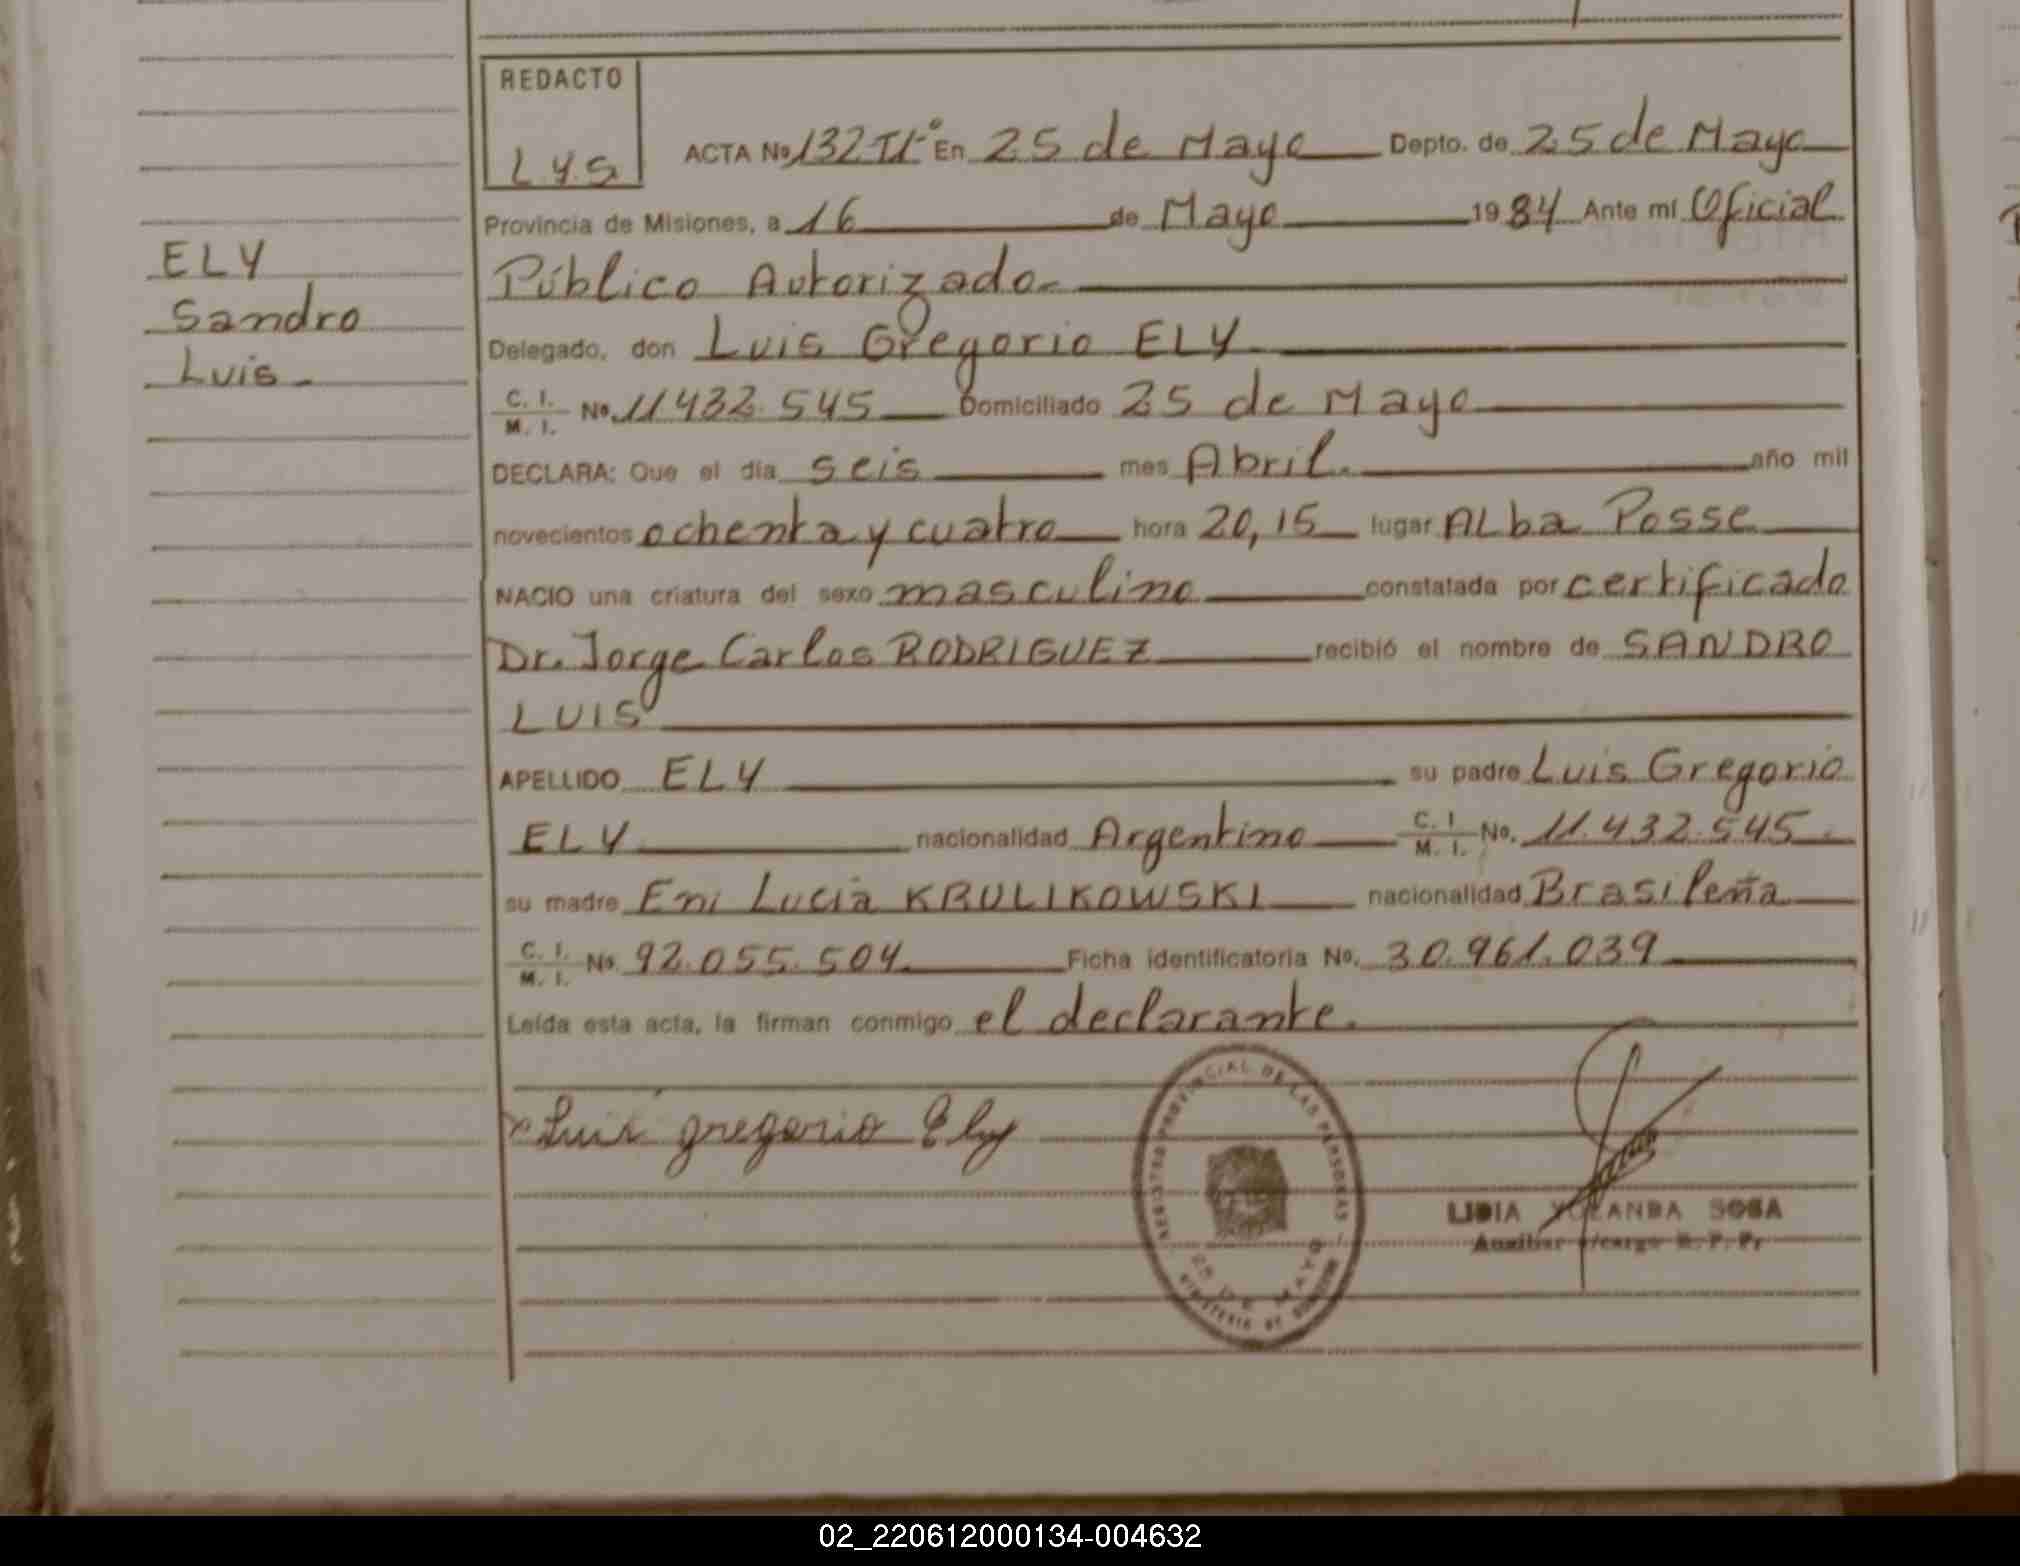 REDACTO
L.y.S
ACTA No 132 TIº En 25 de Mayo Depto. de 25 de Mayo
Provincia de Misiones, a 16 de Mayo 1984 Ante mí Oficial
Público Autorizado.
ELY
Sandro
Luis.
Delegado, don Luis Gregorio ELY
C. I. M. I. No. 11432.545 Domiciliado 25 de Mayo
DECLARA: Que el día seis mes Abril. año mil
novecientos ochenta y cuatro hora 20,15 lugar ALba Posse
NACIO una criatura del sexo masculino constatada por certificado
Dr. Jorge Carlos RODRIGUEZ recibió el nombre de SANDRO
LUIS
APELLIDO ELY su padre Luis Gregorio
ELY nacionalidad Argentino C. I. M. I. No. 11.432.545.
su madre Eni Lucia KRULIKOWSKI nacionalidad Brasileña
C. I. M. I. No. 92.055.504. Ficha identificatoria No. 30.961.039
Leída esta acta, la firman conmigo el declarante.
Luis gregorio Ely
REGISTRO PROVINCIAL DE LAS PERSONAS
25 DE MAYO
MINISTERIO DE GOBIERNO
LIDIA YOLANDA SOSA
Auxiliar e/cargo R. P. P.
02_220612000134-004632